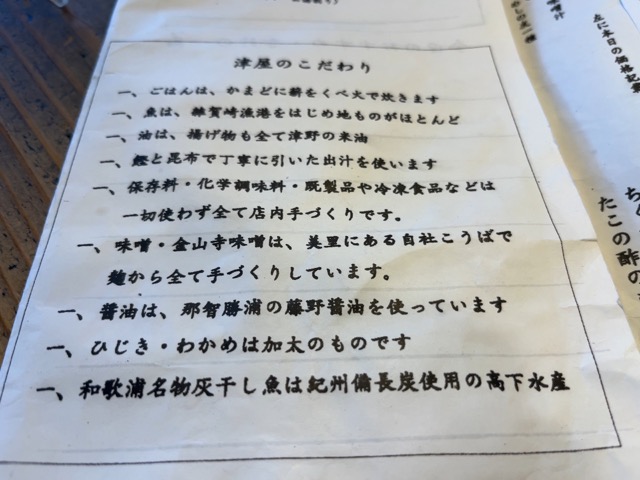 津屋のこだわり
一、ごはんは、かまどに薪をくべ火で炊きます
一、魚は、雑賀崎漁港をはじめ地ものがほとんど
一、油は、揚げ物も全て津野の米油
一、鰹と昆布で丁寧に引いた出汁を使います
一、保存料・化学調味料・既製品や冷凍食品などは
一切使わず全て店内手づくりです。
一、味噌・金山寺味噌は、美里にある自社こうばで
麹から全て手づくりしています。
一、醤油は、那智勝浦の藤野醤油を使っています
一、ひじき・わかめは加太のものです
一、和歌浦名物灰干し魚は紀州備長炭使用の高下水産
味噌汁
左に本日の価格記
たこの酢の